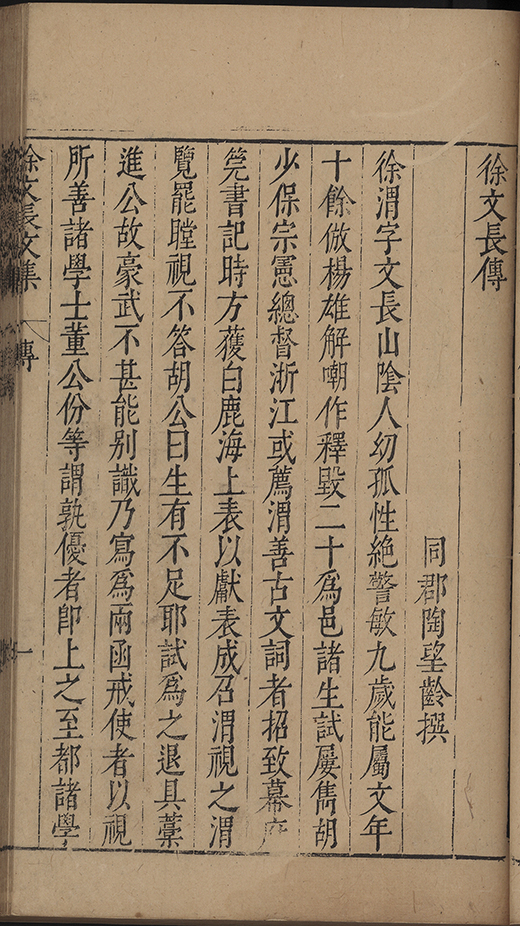 徐文長傳
同郡陶望齡撰
徐渭字文長山陰人幼孤性絶警敏九歲能屬文年
十餘倣楊雄解嘲作釋毀二十爲邑諸生試屢雋胡
少保宗憲總督浙江或薦渭善古文詞者招致幕府
筦書記時方獲白鹿海上表以獻表成召渭視之渭
覽罷瞠視不答胡公曰生有不足耶試爲之退具藁
進公故豪武不甚能别識乃寫爲兩函戒使者以視
所善諸學士董公份等謂孰優者卽上之至都諸學
徐文長文集 傳 一